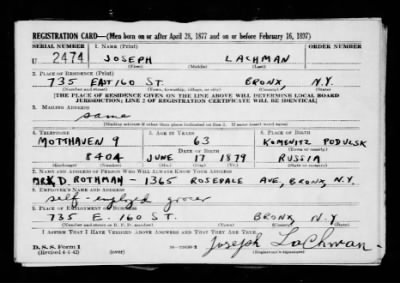 REGISTRATION CARD—(Men born on or after April 28, 1877 and on or before February 16, 1897)
SERIAL NUMBER 1. NAME (Print) ORDER NUMBER
U 2474 JOSEPH LACHMAN
(First) (Middle) (Last)
2. PLACE OF RESIDENCE (Print)
735 EAST 160 ST. BRONX, N.Y.
(Number and street) (Town, township, village, or city) (County) (State)
[THE PLACE OF RESIDENCE GIVEN ON THE LINE ABOVE WILL DETERMINE LOCAL BOARD
JURISDICTION; LINE 2 OF REGISTRATION CERTIFICATE WILL BE IDENTICAL]
3. MAILING ADDRESS
same
[Mailing address if other than place indicated on line 2. If same insert word same]
4. TELEPHONE 5. AGE IN YEARS 6. PLACE OF BIRTH
MOTTHAVEN 9 63 KOMENITZ PODULSK
DATE OF BIRTH
8404 JUNE 17 1879 RUSSIA
(Exchange) (Number) (Mo.) (Day) (Yr.) (State or country)
7. NAME AND ADDRESS OF PERSON WHO WILL ALWAYS KNOW YOUR ADDRESS
D ROTHMAN - 1365 ROSEDALE AVE, BRONX, N.Y.
8. EMPLOYER'S NAME AND ADDRESS
self-employed grocer
9. PLACE OF EMPLOYMENT OR BUSINESS
735 E. 160 ST. BRONX N.Y.
(Number and street or R. F. D. number) (Town) (County) (State)
I AFFIRM THAT I HAVE VERIFIED ABOVE ANSWERS AND THAT THEY ARE TRUE.
D. S. S. Form 1
(Revised 4-1-42) (over) Joseph Lachman
(Registrant's signature)